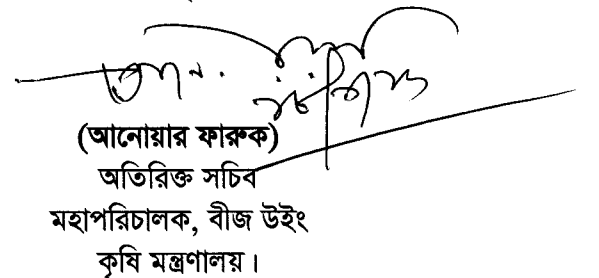 (আনোয়ার ফারুক)
অতিরিক্ত সচিব
মহাপরিচালক, বীজ উইং
কৃষি মন্ত্রণালয়।